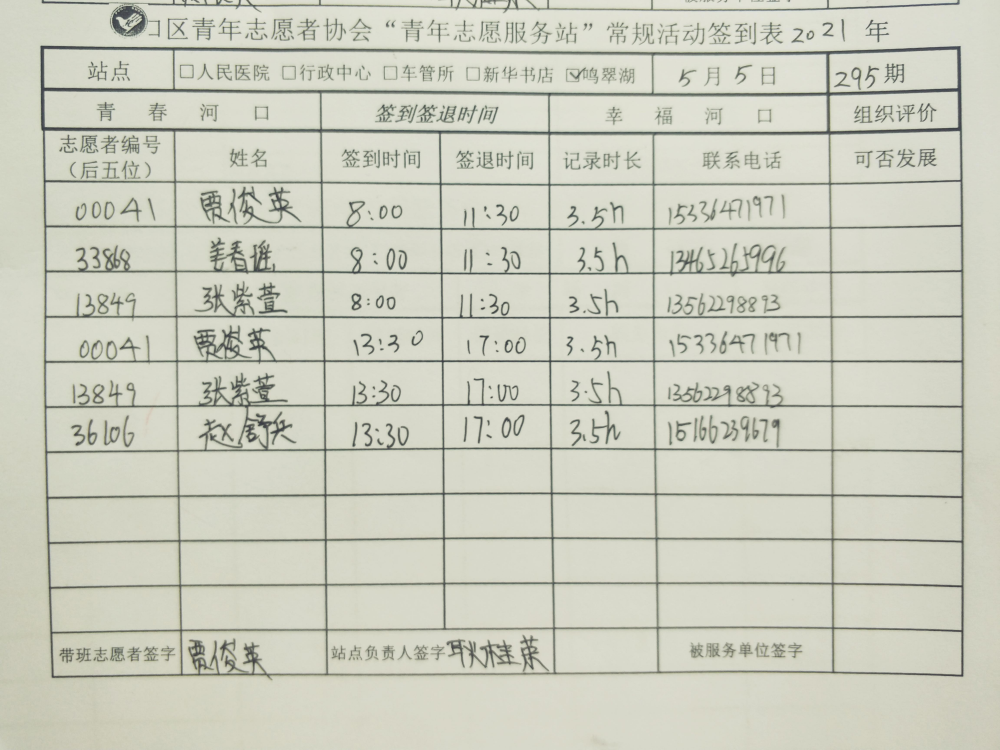 口区青年志愿者协会“青年志愿服务站”常规活动签到表2021年
站点 □人民医院 □行政中心 □车管所 □新华书店 ☑鸣翠湖 5月5日 295期
青春河口 签到签退时间 幸福河口 组织评价
志愿者编号（后五位） 姓名 签到时间 签退时间 记录时长 联系电话 可否发展
00041 贾俊英 8:00 11:30 3.5h 15336471971
33868 姜春瑶 8:00 11:30 3.5h 13465265996
13849 张紫萱 8:00 11:30 3.5h 13562298893
00041 贾俊英 13:30 17:00 3.5h 15336471971
13849 张紫萱 13:30 17:00 3.5h 13562298893
36106 赵舒兵 13:30 17:00 3.5h 15166239679
带班志愿者签字 贾俊英 站点负责人签字 耿桂荣 被服务单位签字